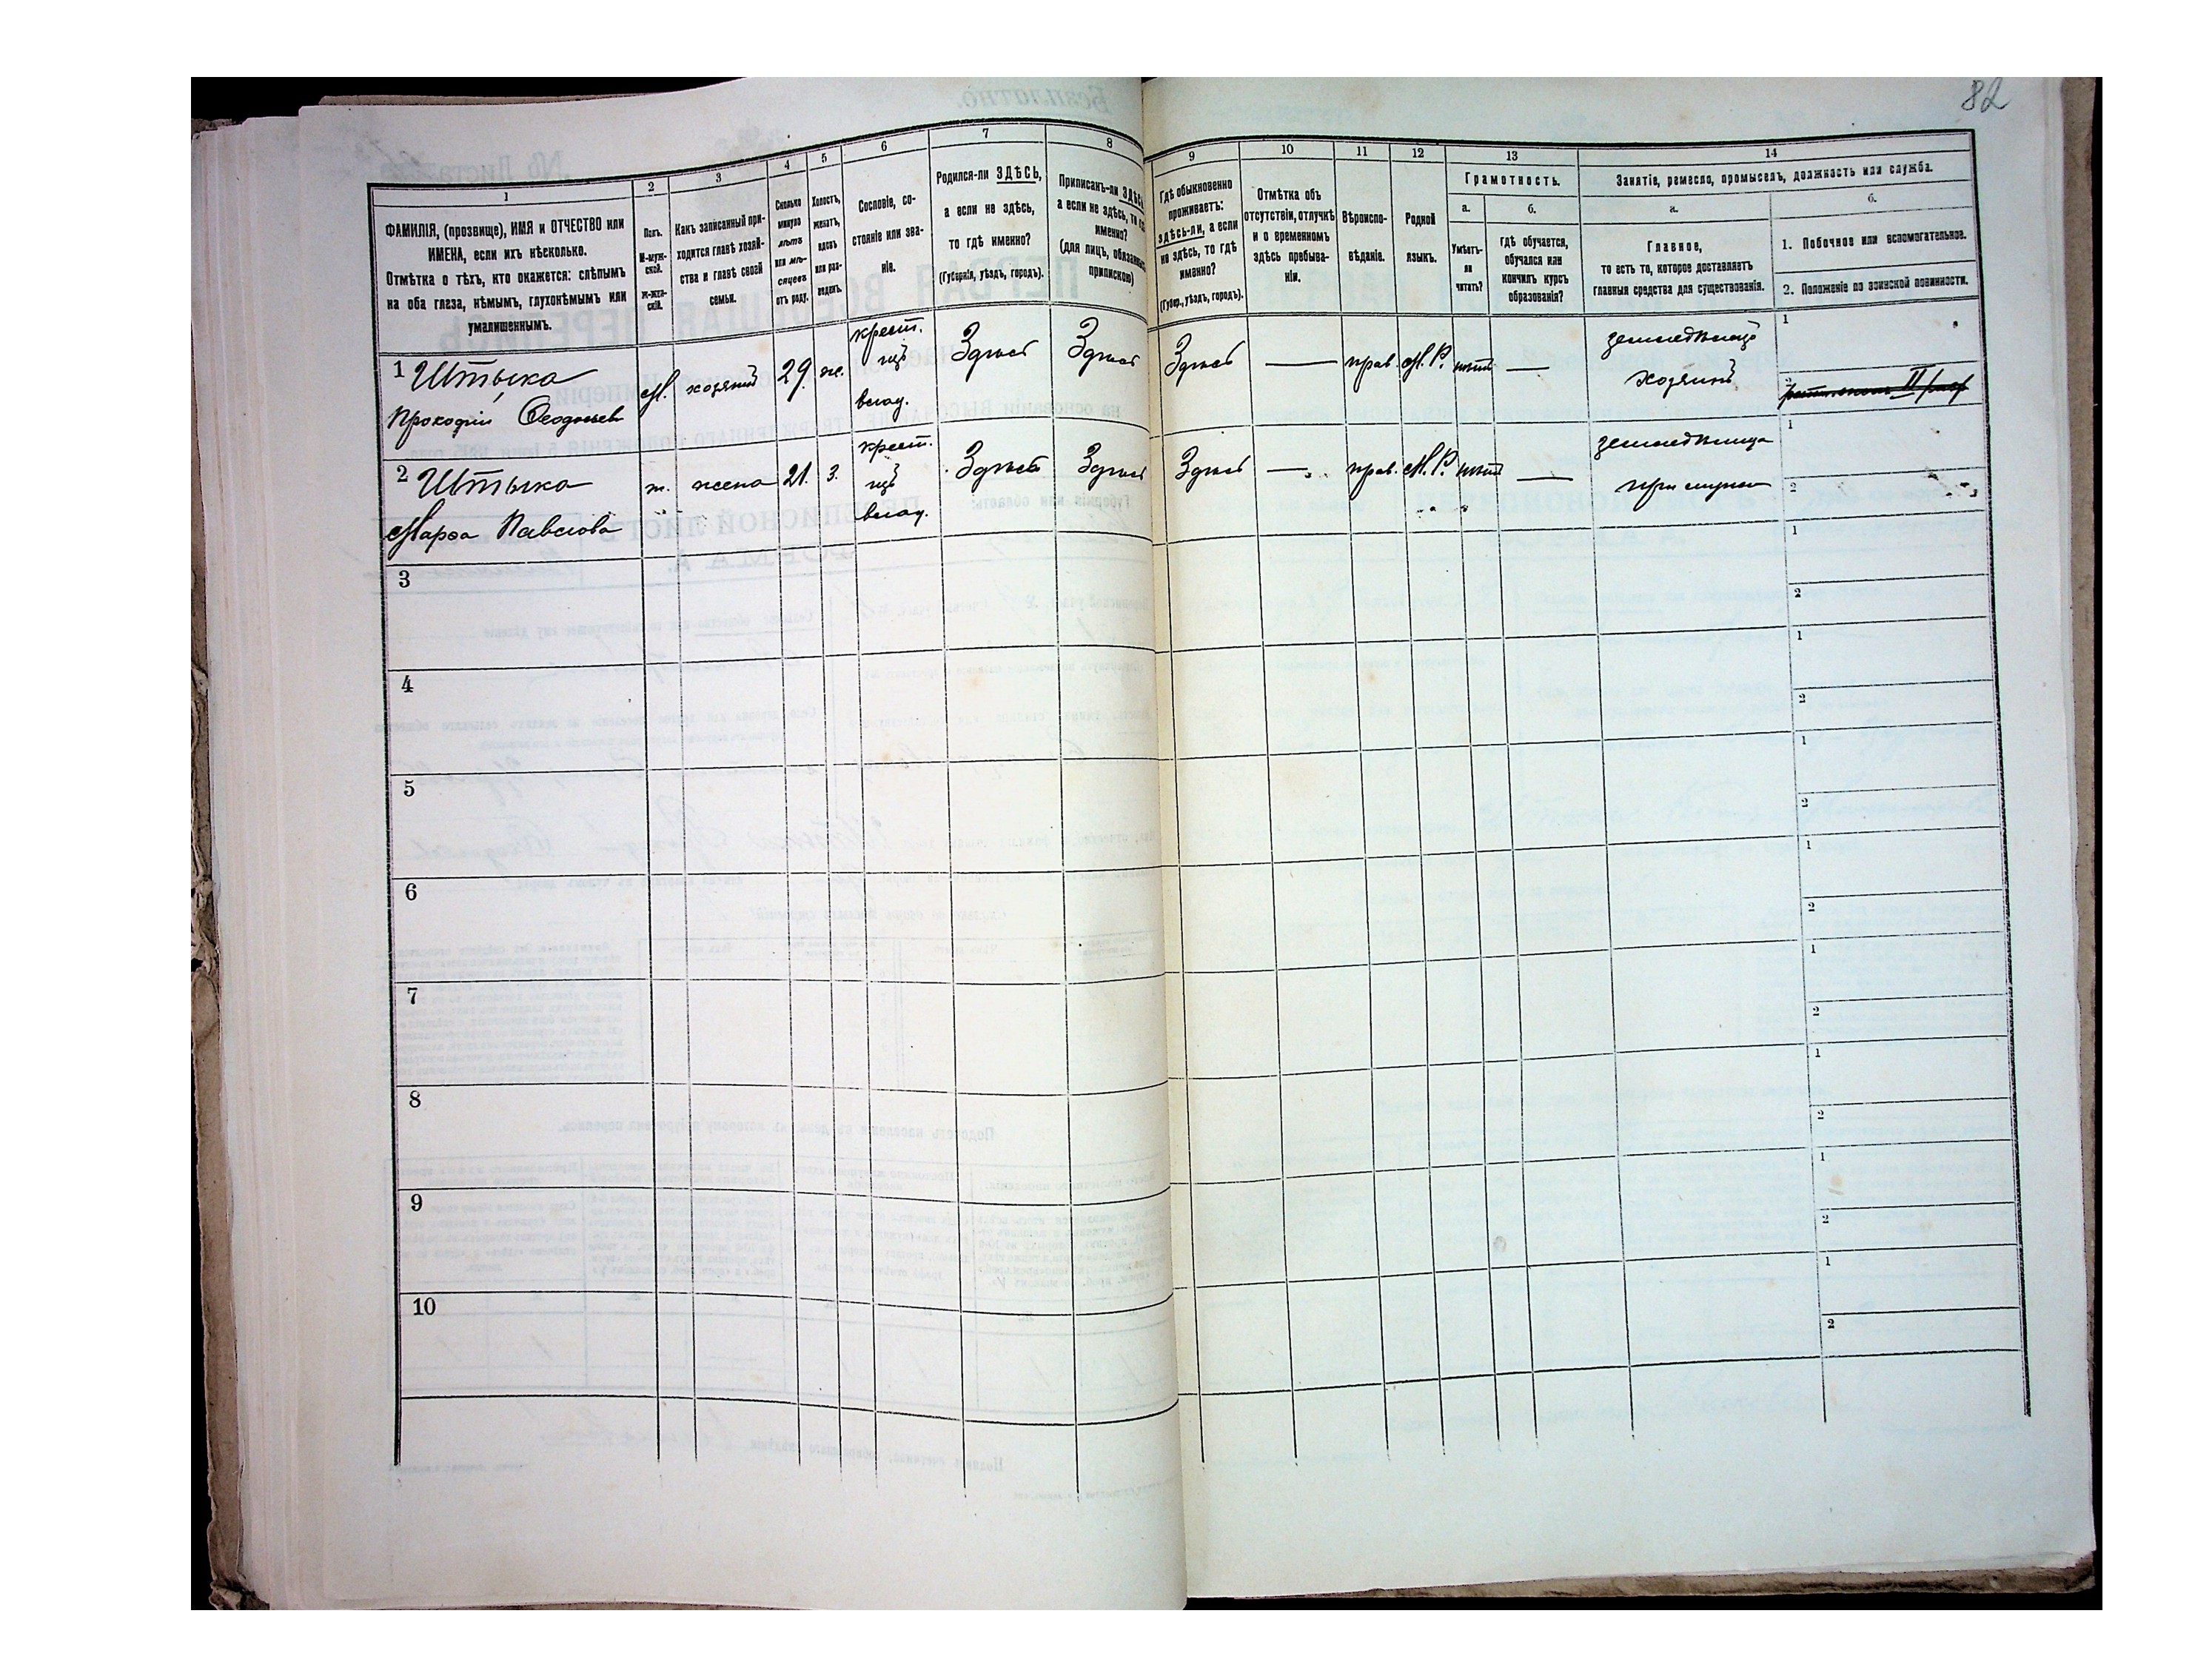 82
1 2 3 4 5 6 7 8 9 10 11 12 13 14
ФАМИЛІЯ, (прозвище), ИМЯ и ОТЧЕСТВО или
ИМЕНА, если ихъ нѣсколько.
Отмѣтка о тѣхъ, кто окажется: слѣпымъ
на оба глаза, нѣмымъ, глухонѣмымъ или
умалишеннымъ.
Полъ.
М-муж-
ской.
Ж-жен-
скій.
Какъ записанный при-
ходится главѣ хозяй-
ства и главѣ своей
семьи.
Сколько
минуло
лѣтъ
или мѣ-
сяцевъ
отъ роду.
Холостъ,
женатъ,
вдовъ
или раз-
веденъ.
Сословіе, со-
стояніе или зва-
ніе.
Родился-ли ЗДѢСЬ,
а если не здѣсь,
то гдѣ именно?
(Губернія, уѣздъ, городъ).
Приписанъ-ли
а если не здѣсь,
именно?
(для лицъ,
припискою)
Гдѣ обыкновенно
проживаетъ:
здѣсь-ли, а если
не здѣсь, то гдѣ
именно?
(Губер., уѣздъ, городъ).
Отмѣтка объ
отсутствіи, отлучкѣ
и о временномъ
здѣсь пребыва-
ніи.
Вѣроиспо-
вѣданіе.
Родной
языкъ.
Грамотность.
а.
Умѣетъ-
ли
читать?
б.
гдѣ обучается,
обучался или
кончилъ курсъ
образованія?
Занятіе, ремесло, промыселъ, должность или служба.
а.
Главное,
то есть то, которое доставляетъ
главныя средства для существованія.
б.
1. Побочное или вспомогательное.
2. Положеніе по воинской повинности.
1 Штыка
Прокофій Феодосьев
М. хозяинъ 29. ж.
крест.
изъ
влад.
Здѣсь Здѣсь Здѣсь — прав. М.Р. нѣтъ —
земледѣлецъ
хозяинъ
1
2
2 Штыка
Марфа Павлова
ж. жена 21. З.
крест.
изъ
влад.
Здѣсь Здѣсь Здѣсь — прав. М.Р. нѣтъ —
земледѣлица
при мужѣ
1
2
3
1
2
4
1
2
5
1
2
6
1
2
7
1
2
8
1
2
9
1
2
10
1
2